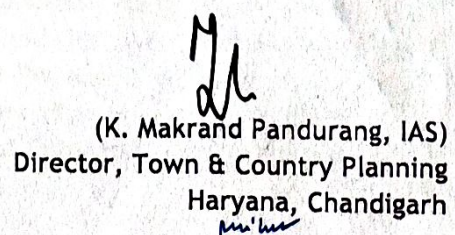 (K. Makrand Pandurang, IAS)
Director, Town & Country Planning
Haryana, Chandigarh